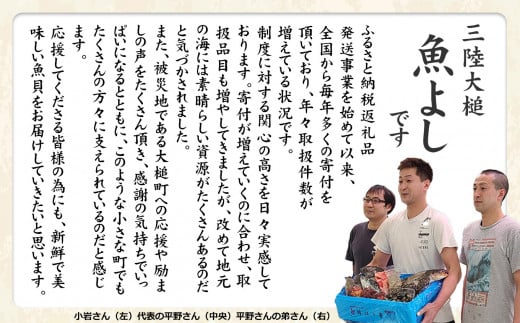 三陸大槌
魚よし
です
ふるさと納税返礼品
発送事業を始めて以来、
全国から毎年多くの寄付を
頂いており、年々取扱件数が
増えている状況です。
制度に対する関心の高さを日々実感して
おります。寄付が増えていくのに合わせ、取
扱品目も増やしてきましたが、改めて地元
の海には素晴らしい資源がたくさんあるのだ
と気づかされました。
また、被災地である大槌町への応援や励ま
しの声をたくさん頂き、感謝の気持ちでいっ
ぱいになるとともに、このような小さな町でも
たくさんの方々に支えられているのだと感じ
ます。
応援してくださる皆様の為にも、新鮮で美
味しい魚貝をお届けしていきたいと思います。
小岩さん（左）代表の平野さん（中央）平野さんの弟さん（右）